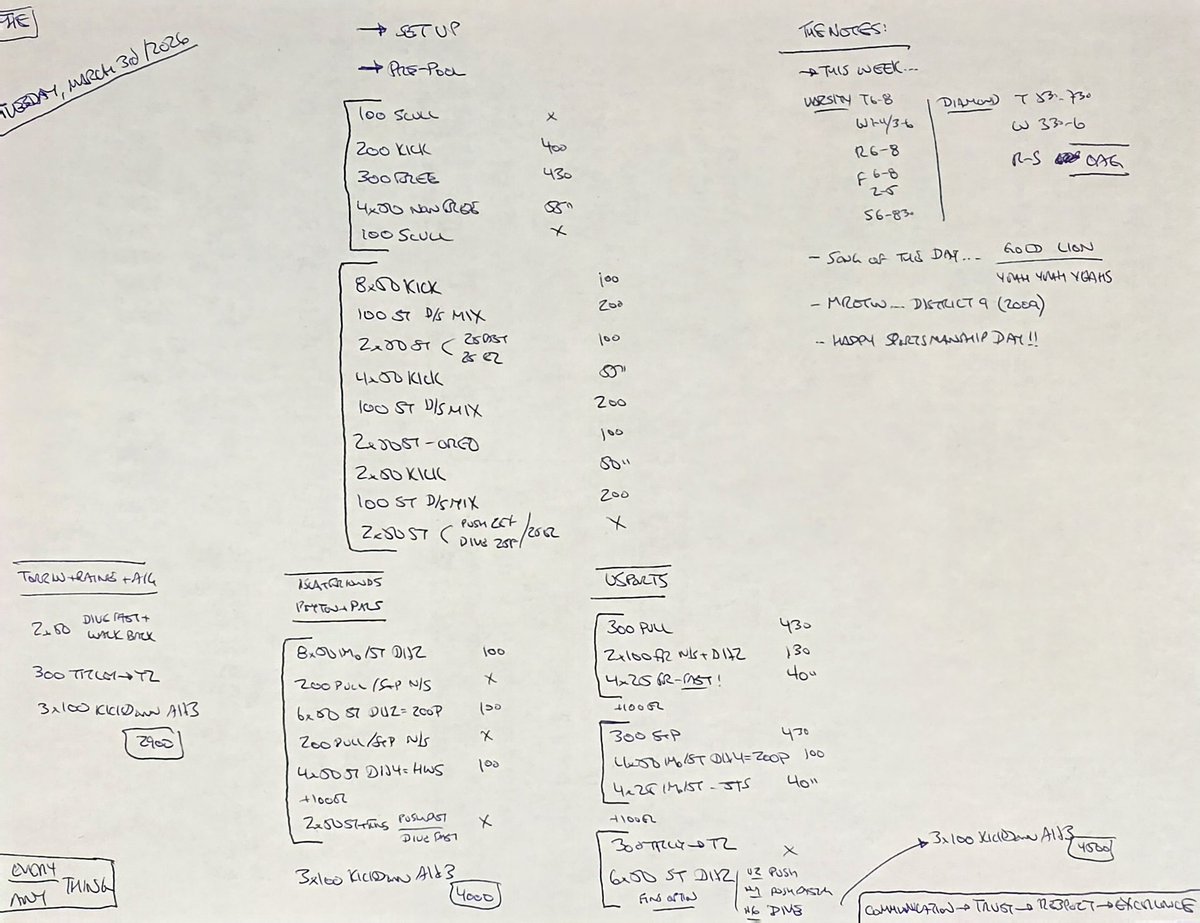 THE
TUESDAY, MARCH 3rd/2026
→ SET UP
→ PRE-POOL
100 SCULL x
200 KICK 400
300 FREE 430
4x50 NON FREE 55"
100 SCULL x
8x50 KICK 100
100 ST D/S MIX 200
2x50 ST ( 25 FAST
25 EZ 100
4x50 KICK 55"
100 ST D/S MIX 200
2x50 ST - 100
2x50 KICK 50"
100 ST D/S MIX 200
2x50 ST ( PUSH 25F
DIVE 25F / 25EZ X
THE NOTES!
→ THIS WEEK...
VARSITY T 6-8
W 1-4/3-6
R 6-8
F 6-8
2-5
S 6-830
DIAMOND T 530-730
W 330-6
R-S OAG
- SONG OF THE DAY... GOLD LION
YEAH YEAH YEAHS
- MROTW... DISTRICT 9 (2009)
- HAPPY SPORTSMANSHIP DAY!!
2x50 DIVE FAST +
WALK BACK
300 →TZ
3x100 KICKDOWN A1d3
2900
PEYTON+PALS
8x50 IMO/ST D1d2 100
200 PULL/S+P N/S X
6x50 ST D1d2=200P 100
200 PULL/S+P N/S X
4x50 ST D1d4=HWS 100
+100EZ
2x50 ST+FINS PUSH FAST
DIVE FAST X
3x100 KICKDOWN A1d3
4000
USPORTS
300 PULL 430
2x100 FR N/S+D1d2 130
4x25 FR-FAST! 40"
+100EZ
300 S+P 430
4x50 IMO/ST D1d4=200P 100
4x25 IMO/ST - 40"
+100EZ
300 →TZ X
6x50 ST D1d2 #2 PUSH
#4 PUSH
FINS OPTION #6 DIVE
→ 3x100 KICKDOWN A1d3
4500
EVERY
ANY THING
COMMUNICATION → TRUST → RESPECT → EXCELLENCE